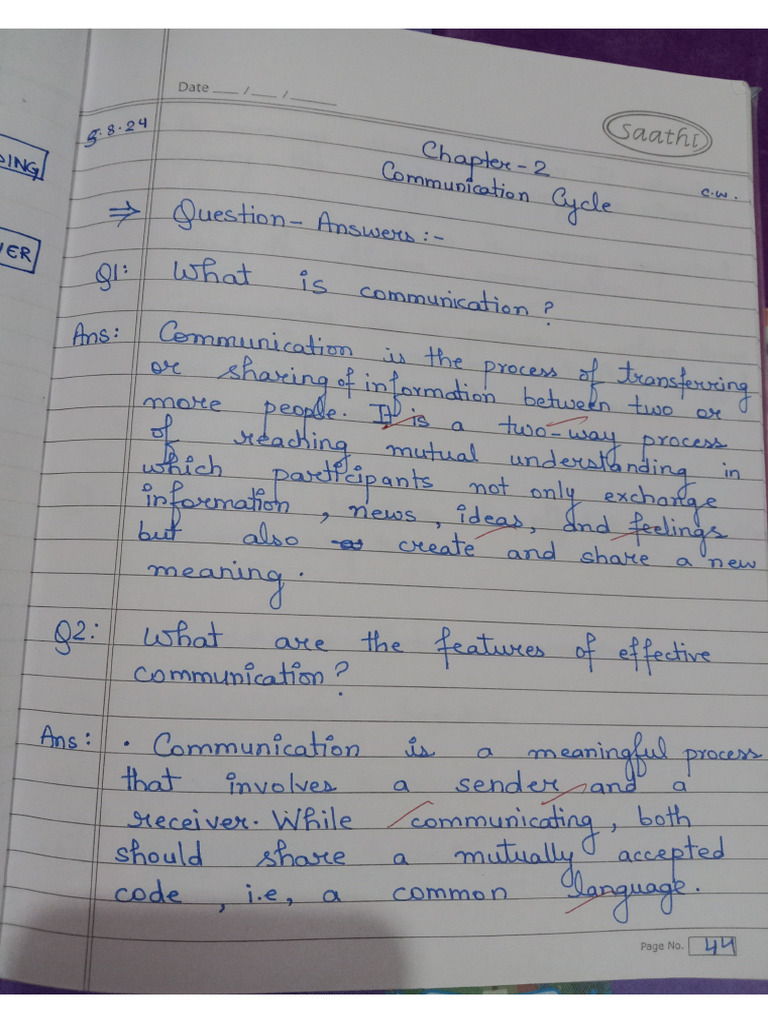 Date ___ / ___ / _____
saathi
8.8.24
DING
Chapter-2
Communication Cycle
C.W.
VER
⇒ Question-Answers:-
Q1: What is communication?
Ans: Communication is the process of transferring
or sharing of information between two or
more people. It is a two-way process
of reaching mutual understanding in
which participants not only exchange
information, news, ideas, and feelings
but also create and share a new
meaning.
Q2: What are the features of effective
communication?
Ans: • Communication is a meaningful process
that involves a sender and a
receiver. While communicating, both
should share a mutually accepted
code, i.e, a common language.
Page No. 44